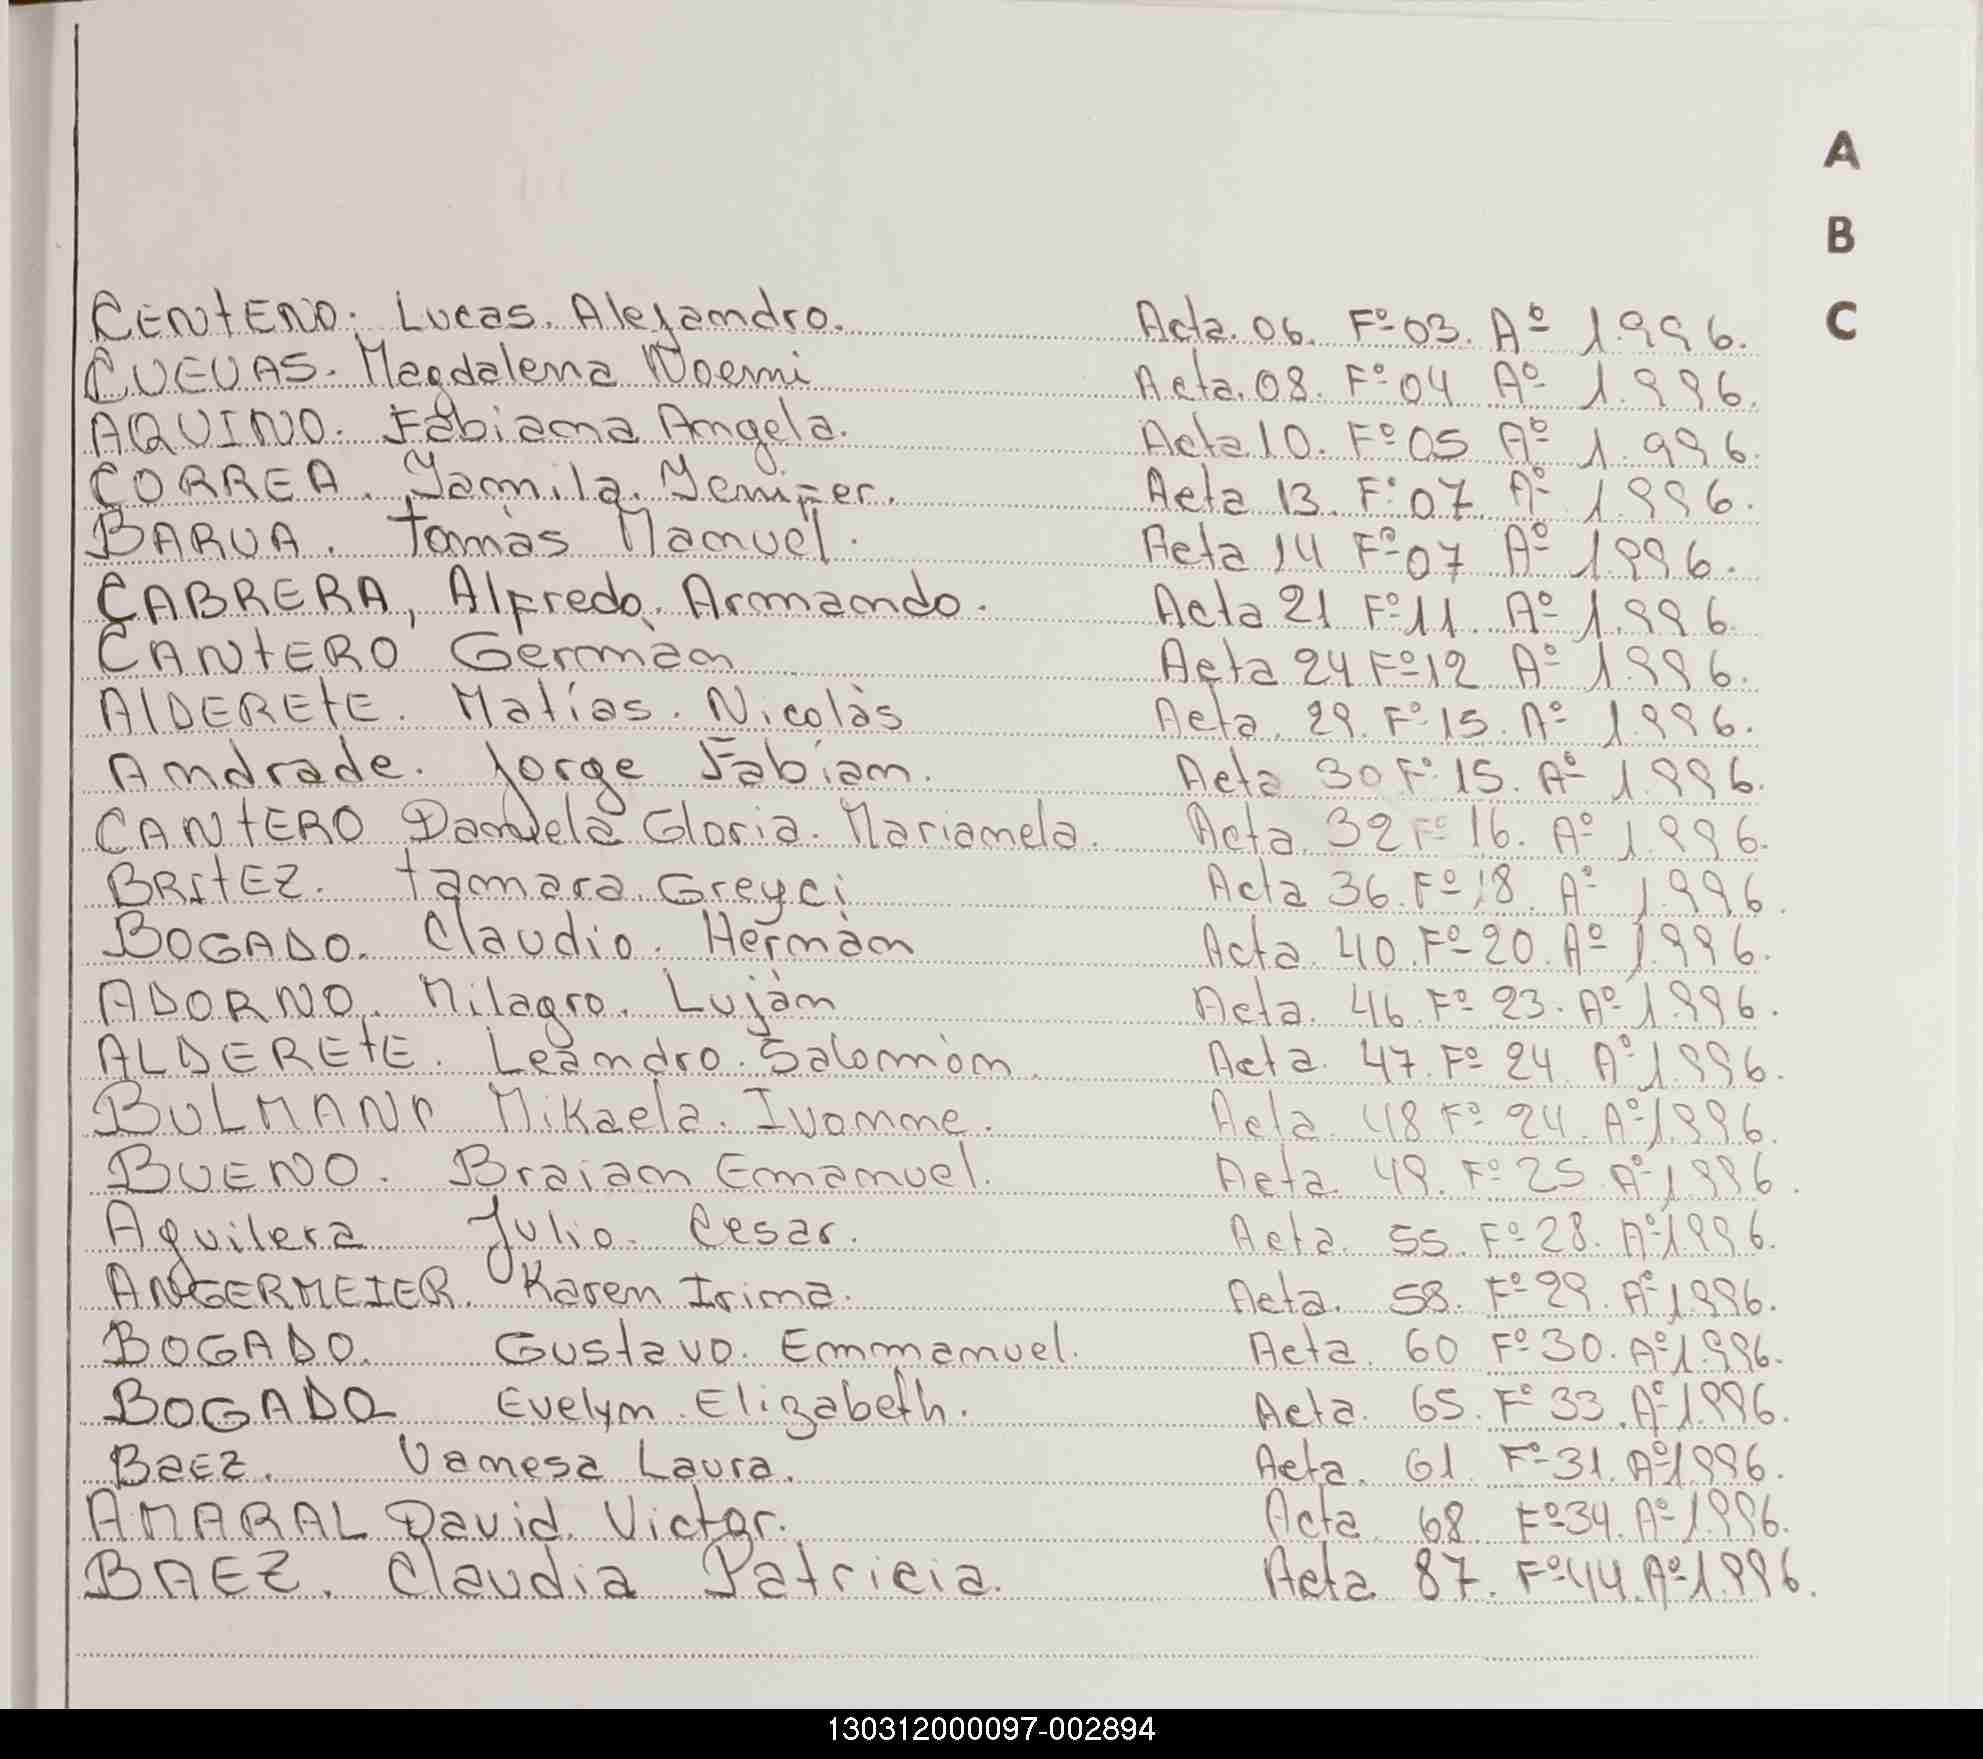 A
B
C
CENTENO. Lucas. Alejandro. Acta. 06. Fº 03. Aº 1.996.
CUEVAS. Magdalena Noemi Acta. 08. Fº 04 Aº 1.996.
AQUINO. Fabiana Angela. Acta 10. Fº 05 Aº 1.996.
CORREA. Yamila. Yenifer. Acta 13. Fº 07. Aº 1.996.
BARUA. Tomàs Manuel. Acta 14 Fº 07 Aº 1.996.
CABRERA, Alfredo. Armando. Acta 21 Fº 11. Aº 1.996.
CANTERO Germàn Acta 24 Fº 12 Aº 1.996.
AlDERETE. Matías. Nicolàs Acta. 29. Fº 15. Aº 1.996.
Andrade. Jorge Fabian. Acta 30 Fº 15. Aº 1.996.
CANTERO Daniela Gloria. Marianela. Acta. 32 Fº 16. Aº 1.996.
BRITEZ. Tamara. Greyci Acta 36. Fº 18. Aº 1.996.
BOGADO. Claudio. Hernàn Acta. 40. Fº 20. Aº 1.996.
ADORNO. Milagro. Lujàn Acta. 46. Fº 23. Aº 1.996.
ALDERETE. Leandro. Salomòn. Acta. 47. Fº 24 Aº 1.996.
BULMANN Mikaela. Ivonne. Acta. 48 Fº 24. Aº 1.996.
BUENO. Braian Emanuel. Acta. 49. Fº 25. Aº 1.996.
Aguilera Julio. Cesar. Acta. 55. Fº 28. Aº 1.996.
ANGERMEIER. Karen Irina. Acta. 58. Fº 29. Aº 1.996.
BOGADO. Gustavo. Emmanuel. Acta. 60 Fº 30. Aº 1.996.
BOGADO Evelyn. Elizabeth. Acta. 65. Fº 33. Aº 1.996.
BaEZ. Vanesa Laura. Acta. 61. Fº 31. Aº 1.996.
AMARAL David. Victor. Acta. 68. Fº 34. Aº 1.996.
BAEZ. Claudia Patricia. Acta. 87. Fº 44. Aº 1.996.
130312000097-002894